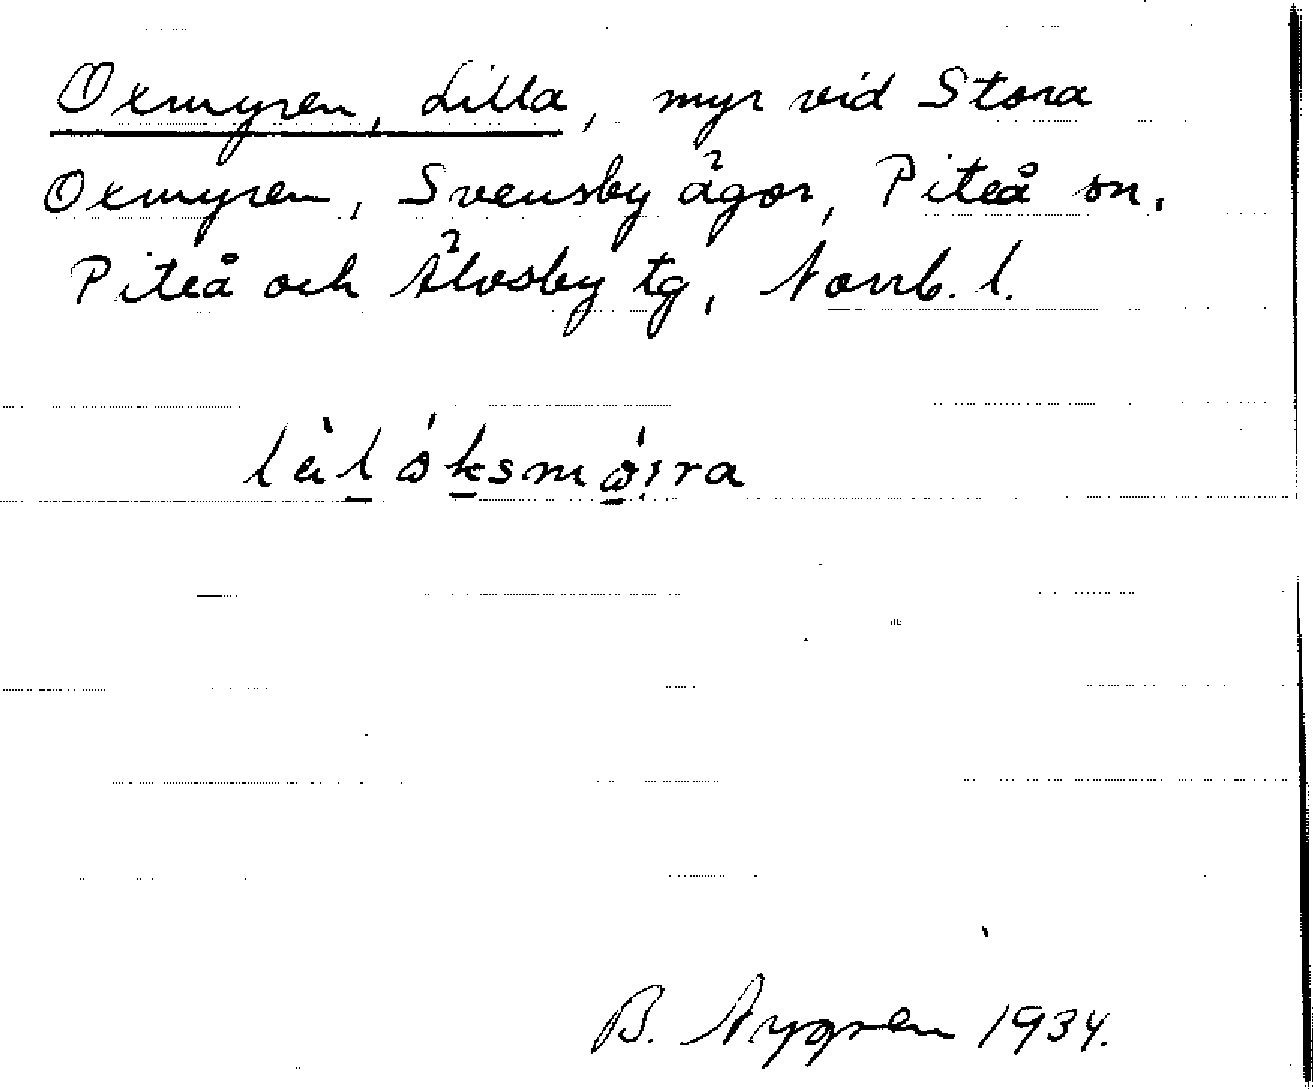 Oxmyren, Lilla, myr vid Stora
Oxmyren, Svensby ägor, Piteå sn.
Piteå och Älvsby tg, Norrb. l.
B. Nygren 1934.